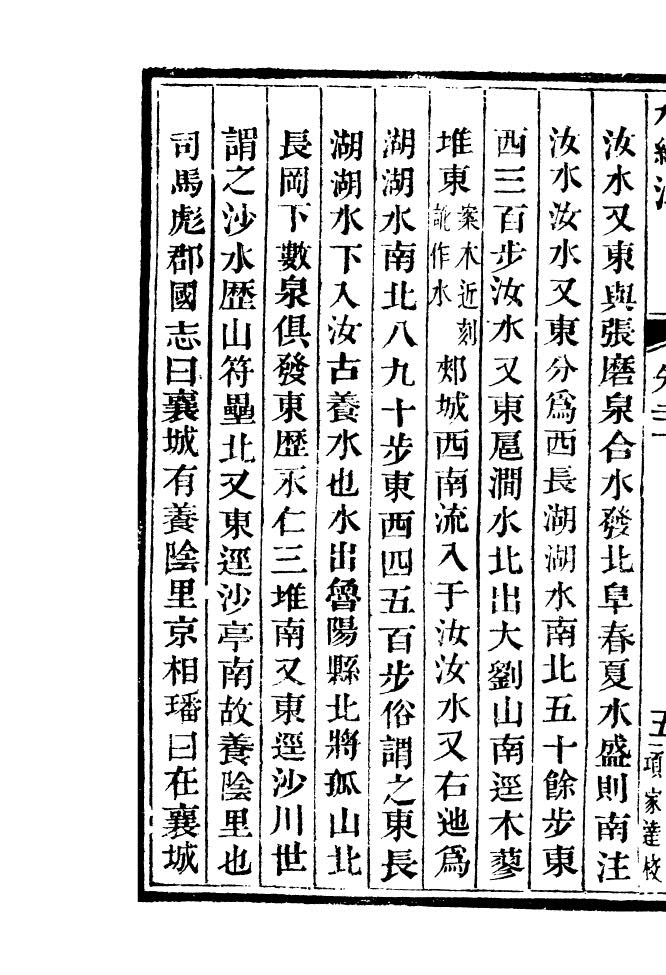 五 項家達校
汝水又東與張磨泉合水發北阜春夏水盛則南注
汝水汝水又東分爲西長湖湖水南北五十餘步東
西三百步汝水又東扈澗水北出大劉山南逕木蓼
堆東案木近刻訛作水郟城西南流入于汝汝水又右迆爲
湖湖水南北八九十步東西四五百步俗謂之東長
湖湖水下入汝古養水也水出魯陽縣北將孤山北
長岡下數泉俱發東歷永仁三堆南又東逕沙川世
謂之沙水歷山符壘北又東逕沙亭南故養陰里也
司馬彪郡國志曰襄城有養陰里京相璠曰在襄城